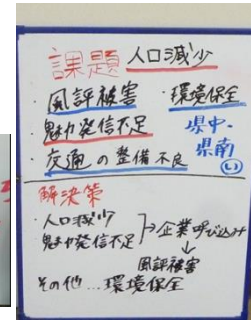 課題 人口減少
・風評被害 ・環境保全
魅力発信不足 県中・
県南 (い)
交通の整備不良
解決策
・人口減少
魅力発信不足 }→企業呼び込み
↓
風評被害
その他…環境保全